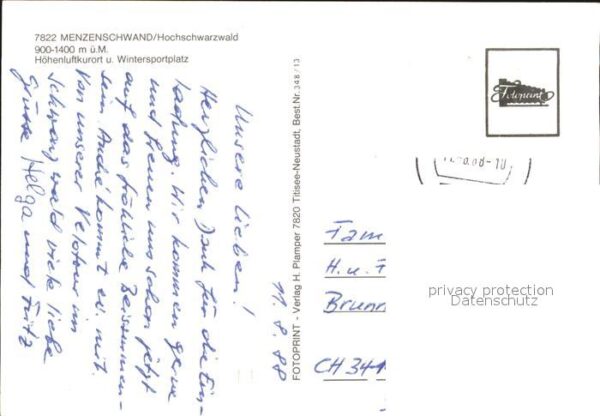 7822 MENZENSCHWAND/Hochschwarzwald
900-1400 m ü.M.
Höhenluftkurort u. Wintersportplatz
Unsere lieben!
Herzlichen Dank für die Ein-
ladung. Wir kommen gerne
und freuen uns schon jetzt
auf das fröhliche Beisammen-
sein. André kommt ev. mit.
Von unserer Velotour im
Schwarzwald viele liebe
Grüsse Helga und Fritz
11.8.88
FOTOPRINT - Verlag H. Plamper 7820 Titisee-Neustadt, Best.Nr. 348/13
Fotoprint
Fam
H. u. F
Brunn
CH 34
privacy protection
Datenschutz